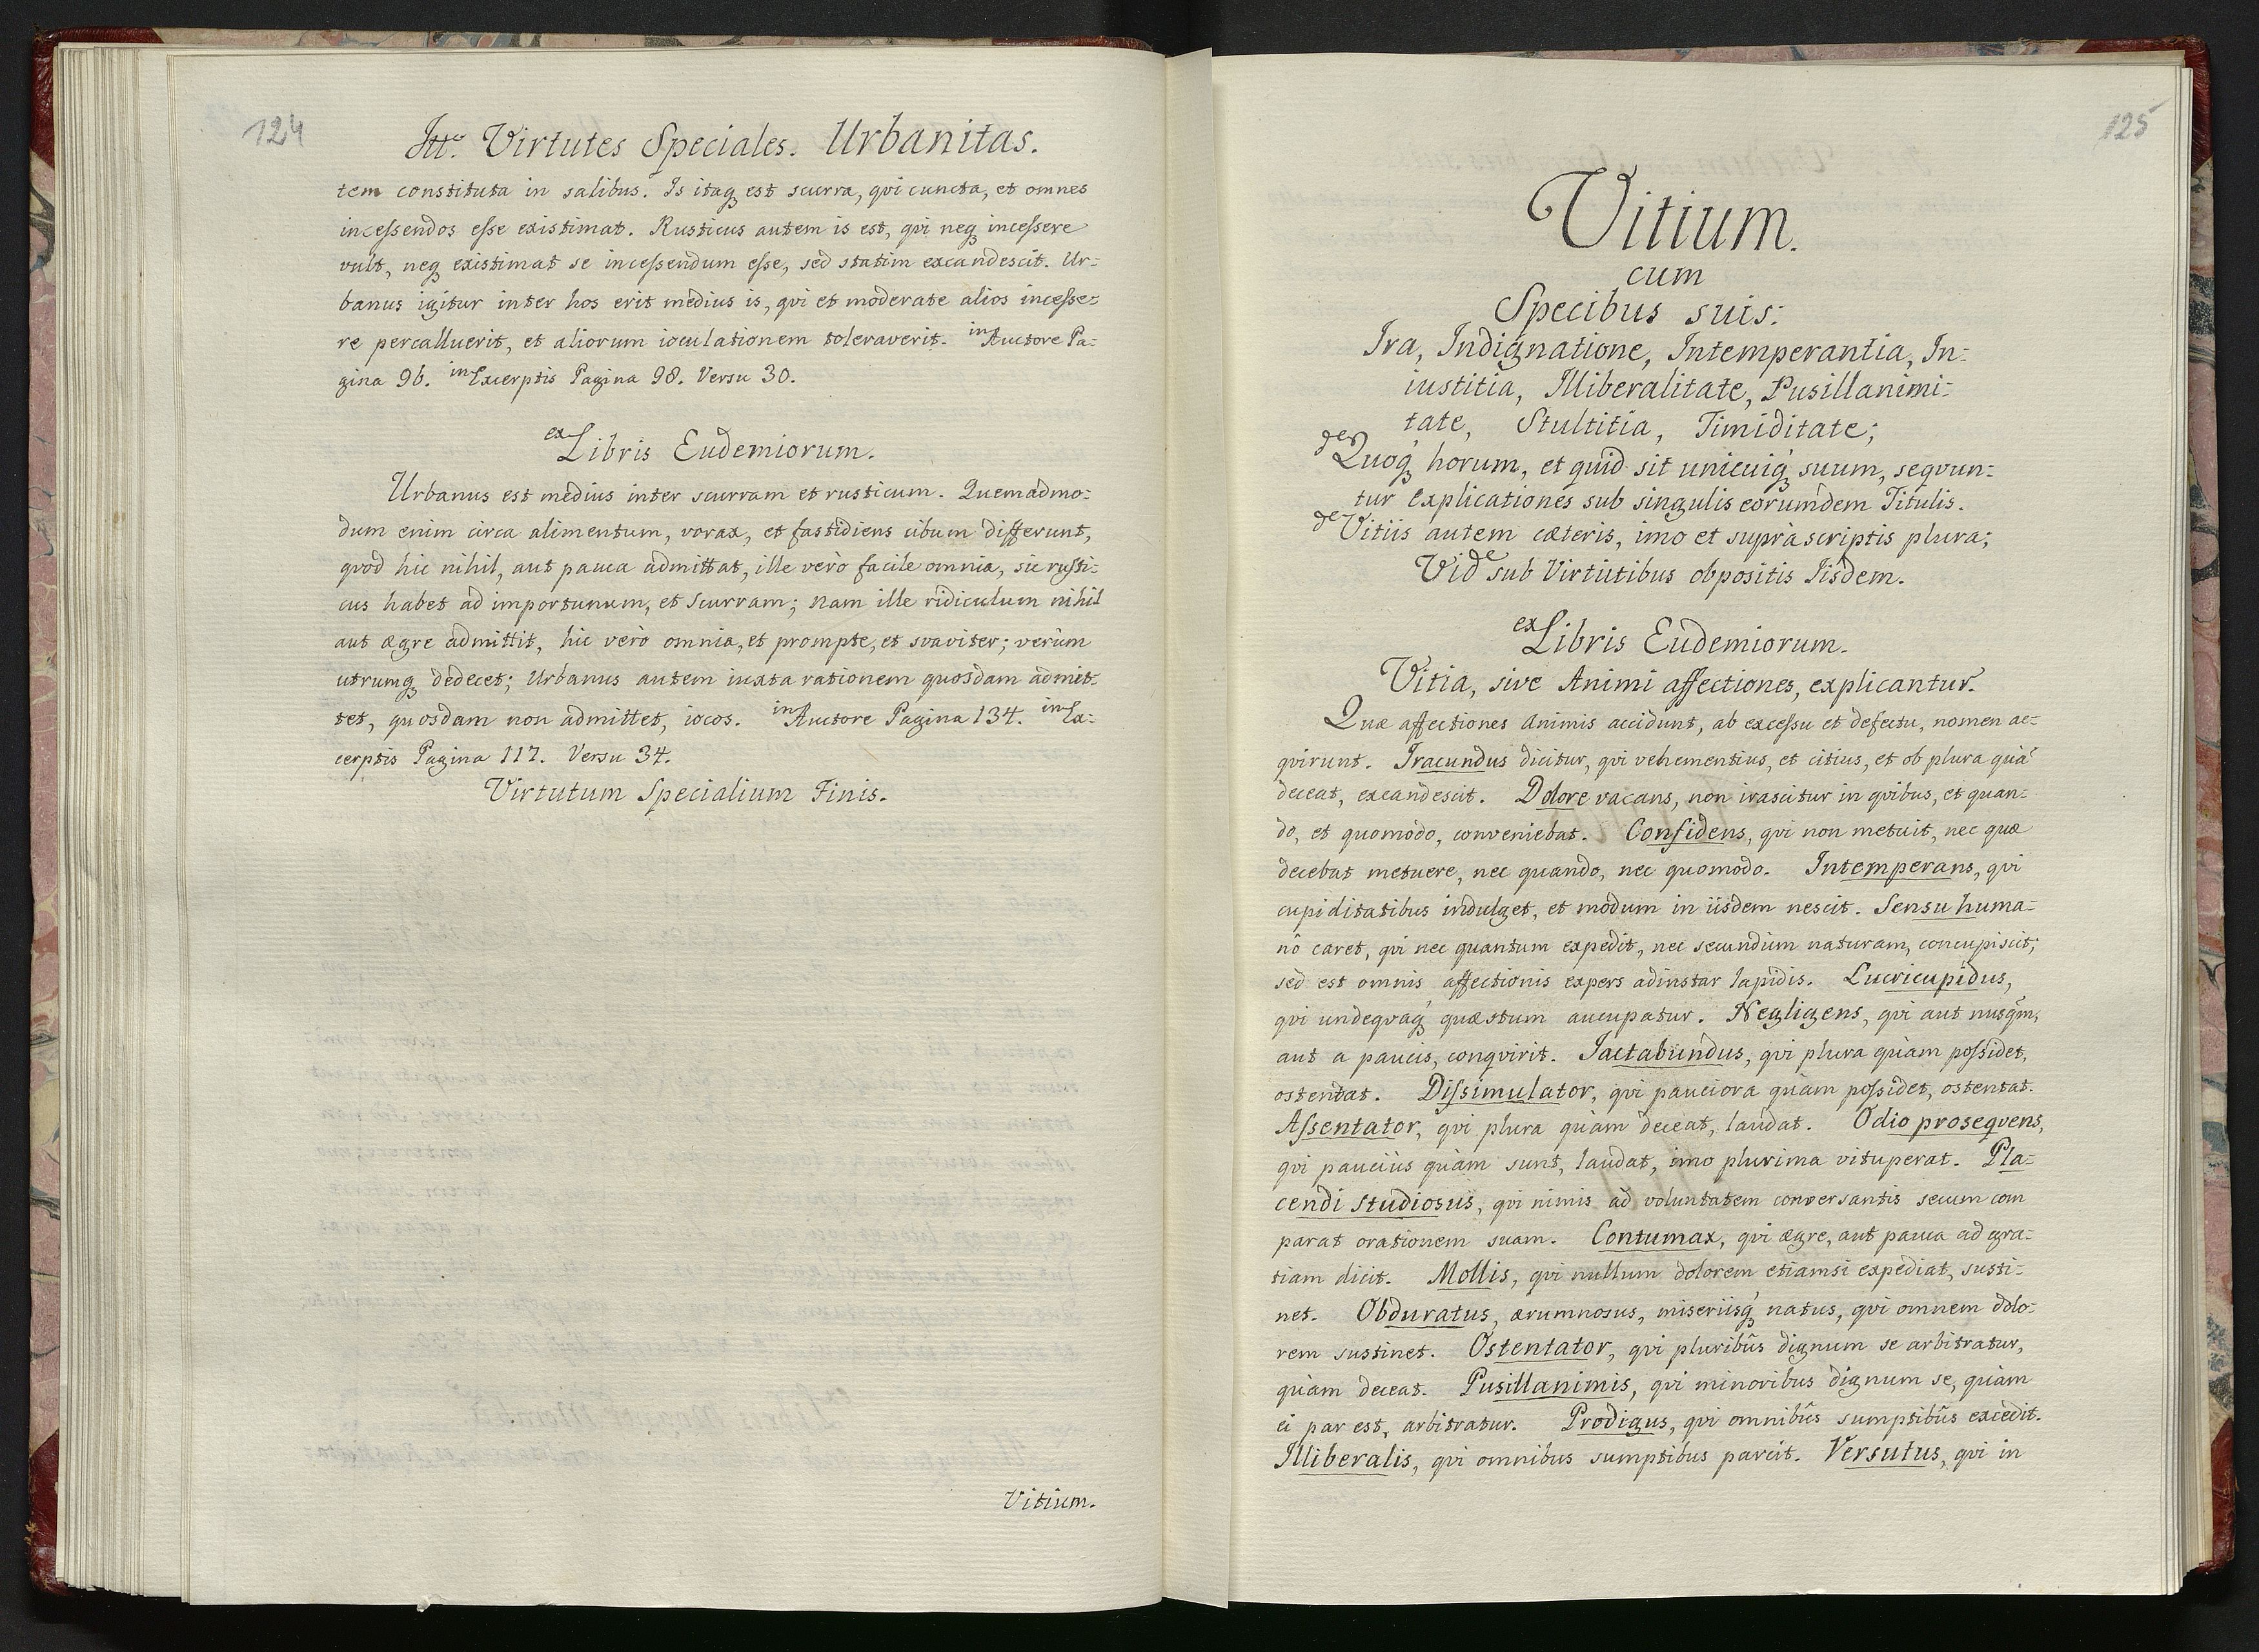 124
IIIo. Virtutes Speciales. Urbanitas.
tem constituta in salibus. Is itaq́ est scurra, qvi cuncta, et omnes
incessendos esse existimat. Rusticus autem is est, qvi neq́ incessere
vult, neq́ existimat se incessendum esse, sed statim excandescit. Ur-
banus igitur inter hos erit medius is, qvi et moderate alios incesse-
re percalluerit, et aliorum ioculationem toleraverit. in Auctore Pa-
gina 96. in Excerptis Pagina 98. Versu 30.
ex Libris Eudemiorum.
Urbanus est medius inter scurram et rusticum. Quemadmo-
dum enim circa alimentum, vorax, et fastidiens cibum differunt,
qvod hic nihil, aut pauca admittat, ille verò facile omnia, sic rusti-
cus habet ad importunum, et scurram; nam ille ridiculum nihil
aut ægre admittit, hic verò omnia, et prompte, et svaviter; verùm
utrumq́ dedecet; Urbanus autem iuxta rationem quosdam admit-
tet, quosdam non admittet, iocos. in Auctore Pagina 134. in Ex-
cerptis Pagina 117. Versu 34.
Virtutum Specialium Finis.
Vitium.
125
Vitium.
cum
Specibus suis:
Ira, Indignatione, Intemperantia, In-
iustitia, Illiberalitate, Pusillanimi-
tate, Stultitia, Timiditate;
de Quoq́ horum, et quid sit unicuiq́ suum, seqvun-
tur explicationes sub singulis eorumdem Titulis.
de Vitiis autem cæteris, imo et suprà scriptis plura;
Vide sub Virtutibus obpositis Iisdem.
ex Libris Eudemiorum.
Vitia, sive Animi affectiones, explicantur.
Quæ affectiones animis accidunt, ab excessu et defectu, nomen ac-
qvirunt. Iracundus dicitur, qvi vehementius, et citius, et ob plura quã
deceat, excandescit. Dolore vacans, non irascitur in qvibus, et quan-
do, et quomodo, conveniebat. Confidens, qvi non metuit, nec quæ
decebat metuere, nec quando, nec quomodo. Intemperans, qvi
cupiditatibus indulget, et modum in iisdem nescit. Sensu huma-
nô caret, qvi nec quantum expedit, nec secundùm naturam, concupiscit;
sed est omnis affectionis expers adinstar lapidis. Lucricupidus,
qvi undeqvaq́ quæstum aucupatur. Negligens, qvi aut nusqm̃,
aut a paucis, conqvirit. Iactabundus, qvi plura quàm possidet,
ostentat. Dissimulator, qvi pauciora quàm possidet, ostentat.
Assentator, qvi plura quàm deceat, laudat. Odio proseqvens,
qvi pauciùs quàm sunt, laudat, imo plurima vituperat. Pla-
cendi studiosus, qvi nimis ad voluntatem conversantis secum com
parat orationem suam. Contumax, qvi ægre, aut pauca ad gra-
tiam dicit. Mollis, qvi nullum dolorem etiamsi expediat, susti-
net. Obduratus, ærumnosus, miseriisq́ natus, qvi omnem dolo-
rem sustinet. Ostentator, qvi pluribũs dignum se arbitratur,
quàm deceat. Pusillanimis, qvi minoribus dignum se, quàm
ei par est, arbitratur. Prodigus, qvi omnibũs sumptibũs excedit.
Illiberalis, qvi omnibus sumptibus parcit. Versutus, qvi in